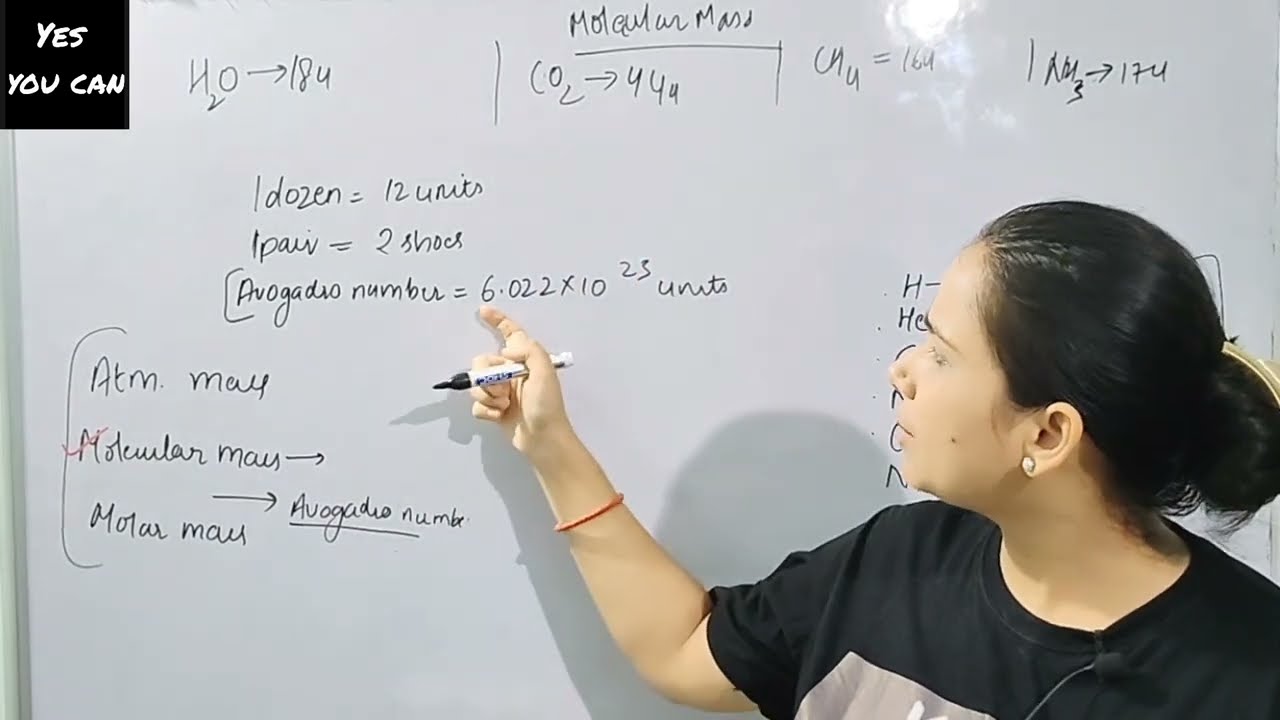 YES
YOU CAN
Molecular Mass
H2O → 18u | CO2 → 44u | CH4 = 16u | NH3 → 17u
1 dozen = 12 units
1 pair = 2 shoes
[Avogadro number = 6.022 × 10^23 units
H-
He
Atm. mass
Molecular mass →
Molar mass → Avogadro numbe.